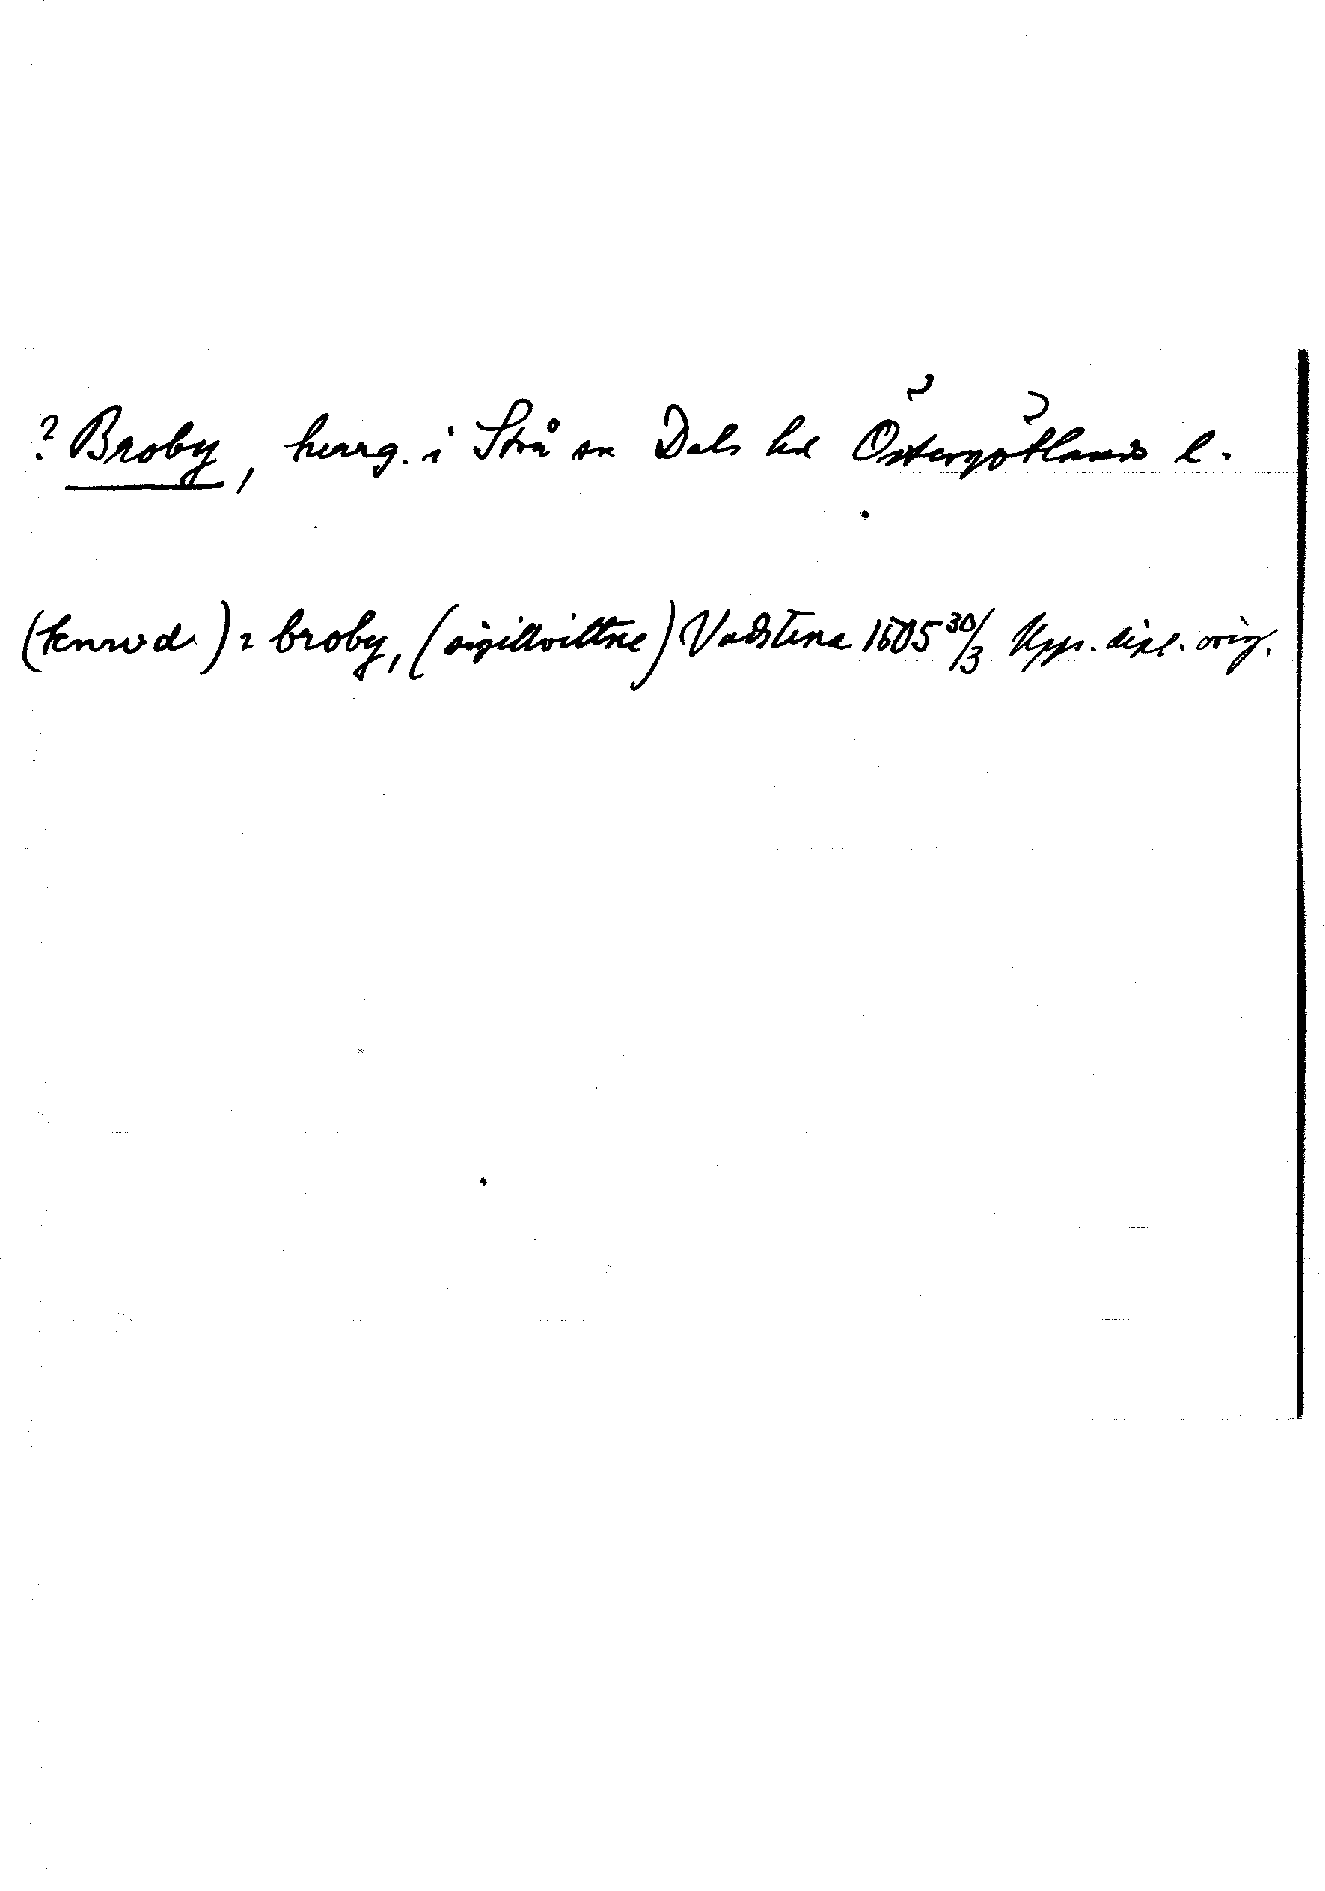 ? Broby, herrg. i Strå sn Dals hd Östergötlands l.
(knwd) i broby, (sigillvittne) Vadstena 1505 30/3 Upps. dipl. orig.